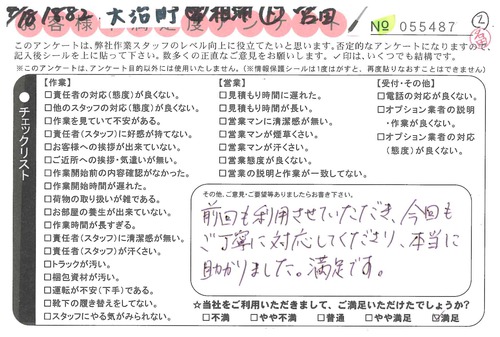 大治町
お客様不満足度アンケート
№ 055487
②
このアンケートは、弊社作業スタッフのレベル向上に役立てたいと思います。否定的なアンケートになりますので、
記入後シールを上に貼って下さい。数多くの正直なご意見をお願いします。✓印は、いくつでも結構です。
※このアンケートは、アンケート目的以外には使用いたしません。(※情報保護シールは1度はがすと、再度貼りなおすことはできません。)
●チェックリスト
【作業】
□責任者の対応(態度)が良くない。
□他のスタッフの対応(態度)が良くない。
□作業を見ていて不安がある。
□責任者(スタッフ)に好感が持てない。
□お客様への挨拶が出来ていない。
□ご近所への挨拶・気遣いが無い。
□作業開始前の内容確認がなかった。
□作業開始時間が遅れた。
□荷物の取り扱いが雑である。
□お部屋の養生が出来ていない。
□作業時間が長すぎる。
□責任者(スタッフ)に清潔感が無い。
□責任者(スタッフ)が汗くさい。
□トラックが汚い。
□梱包資材が汚い。
□運転が不安(下手)である。
□靴下の履き替えをしてない。
□スタッフにやる気がみられない。
【営業】
□見積もり時間に遅れた。
□見積もり時間が長い。
□営業マンに清潔感が無い。
□営業マンが煙草くさい。
□営業マンが汗くさい。
□営業態度が良くない。
□営業の説明と作業が一致してない。
【受付・その他】
□電話の対応が良くない。
□オプション業者の説明
・作業が良くない。
□オプション業者の対応
(態度)が良くない。
その他、ご意見・ご要望等ありましたらお書き下さい。
前回も利用させていただき、今回も
ご丁寧に対応してくださり、本当に
助かりました。満足です。
☆当社をご利用いただきまして、ご満足いただけたでしょうか?
□不満 □やや不満 □普通 □やや満足 ☑満足